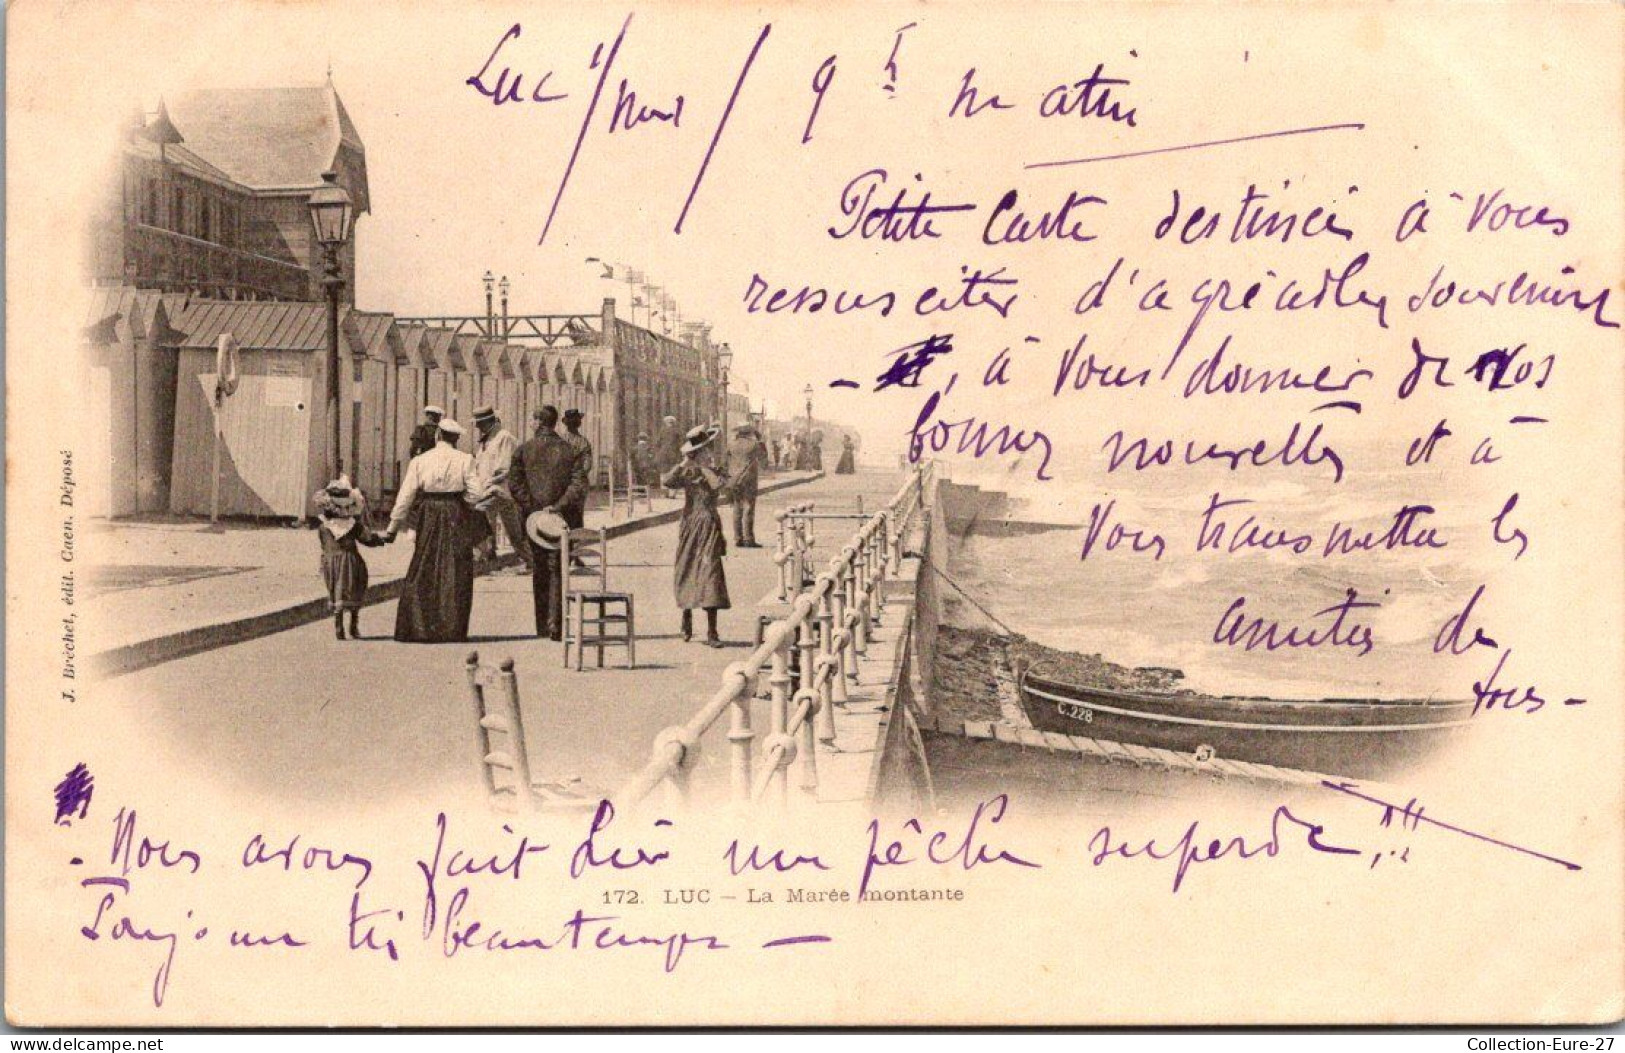 Luc 1/ / 9h matin
Petite Carte destinée à vous
ressusciter d'agréables souvenirs
-, à vous donner de vos
bonnes nouvelles et à
vous transmettre les
amitiés de
tous -
C.228
J. Bréchet, édit. Caen. Déposé
- Nous avons fait hier une pêche superbe, !!!
172. LUC – La Marée montante
Toujours très beau temps –
Collection-Eure-27
delcampe.net